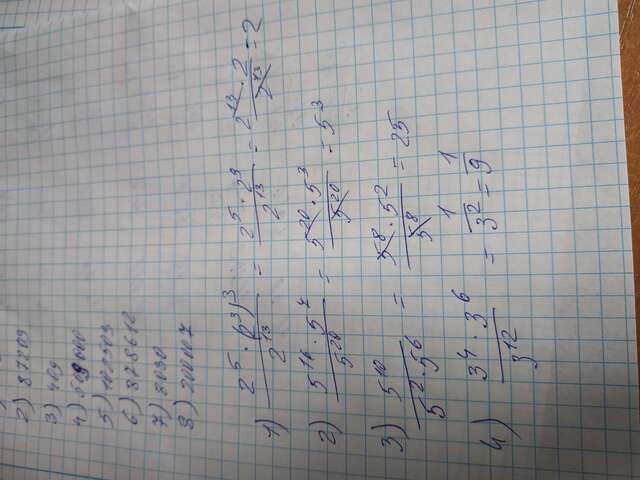 2) 87209
3) 469
5) 102303
6) 378612
7) 3030
1) (2^5 · (2^3)^3)/2^13 = (2^5 · 2^9)/2^13 = (2^13 · 2)/2^13 = 2
2) (5^16 · 5^7)/5^20 = (5^20 · 5^3)/5^20 = 5^3
3) 5^10/(5^2 · 5^6) = (5^8 · 5^2)/5^8 = 25
4) (3^4 · 3^6)/3^12 = 1/3^2 = 1/9